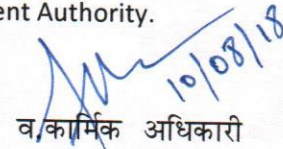 ent Authority.
10/08/18
व.कार्मिक अधिकारी